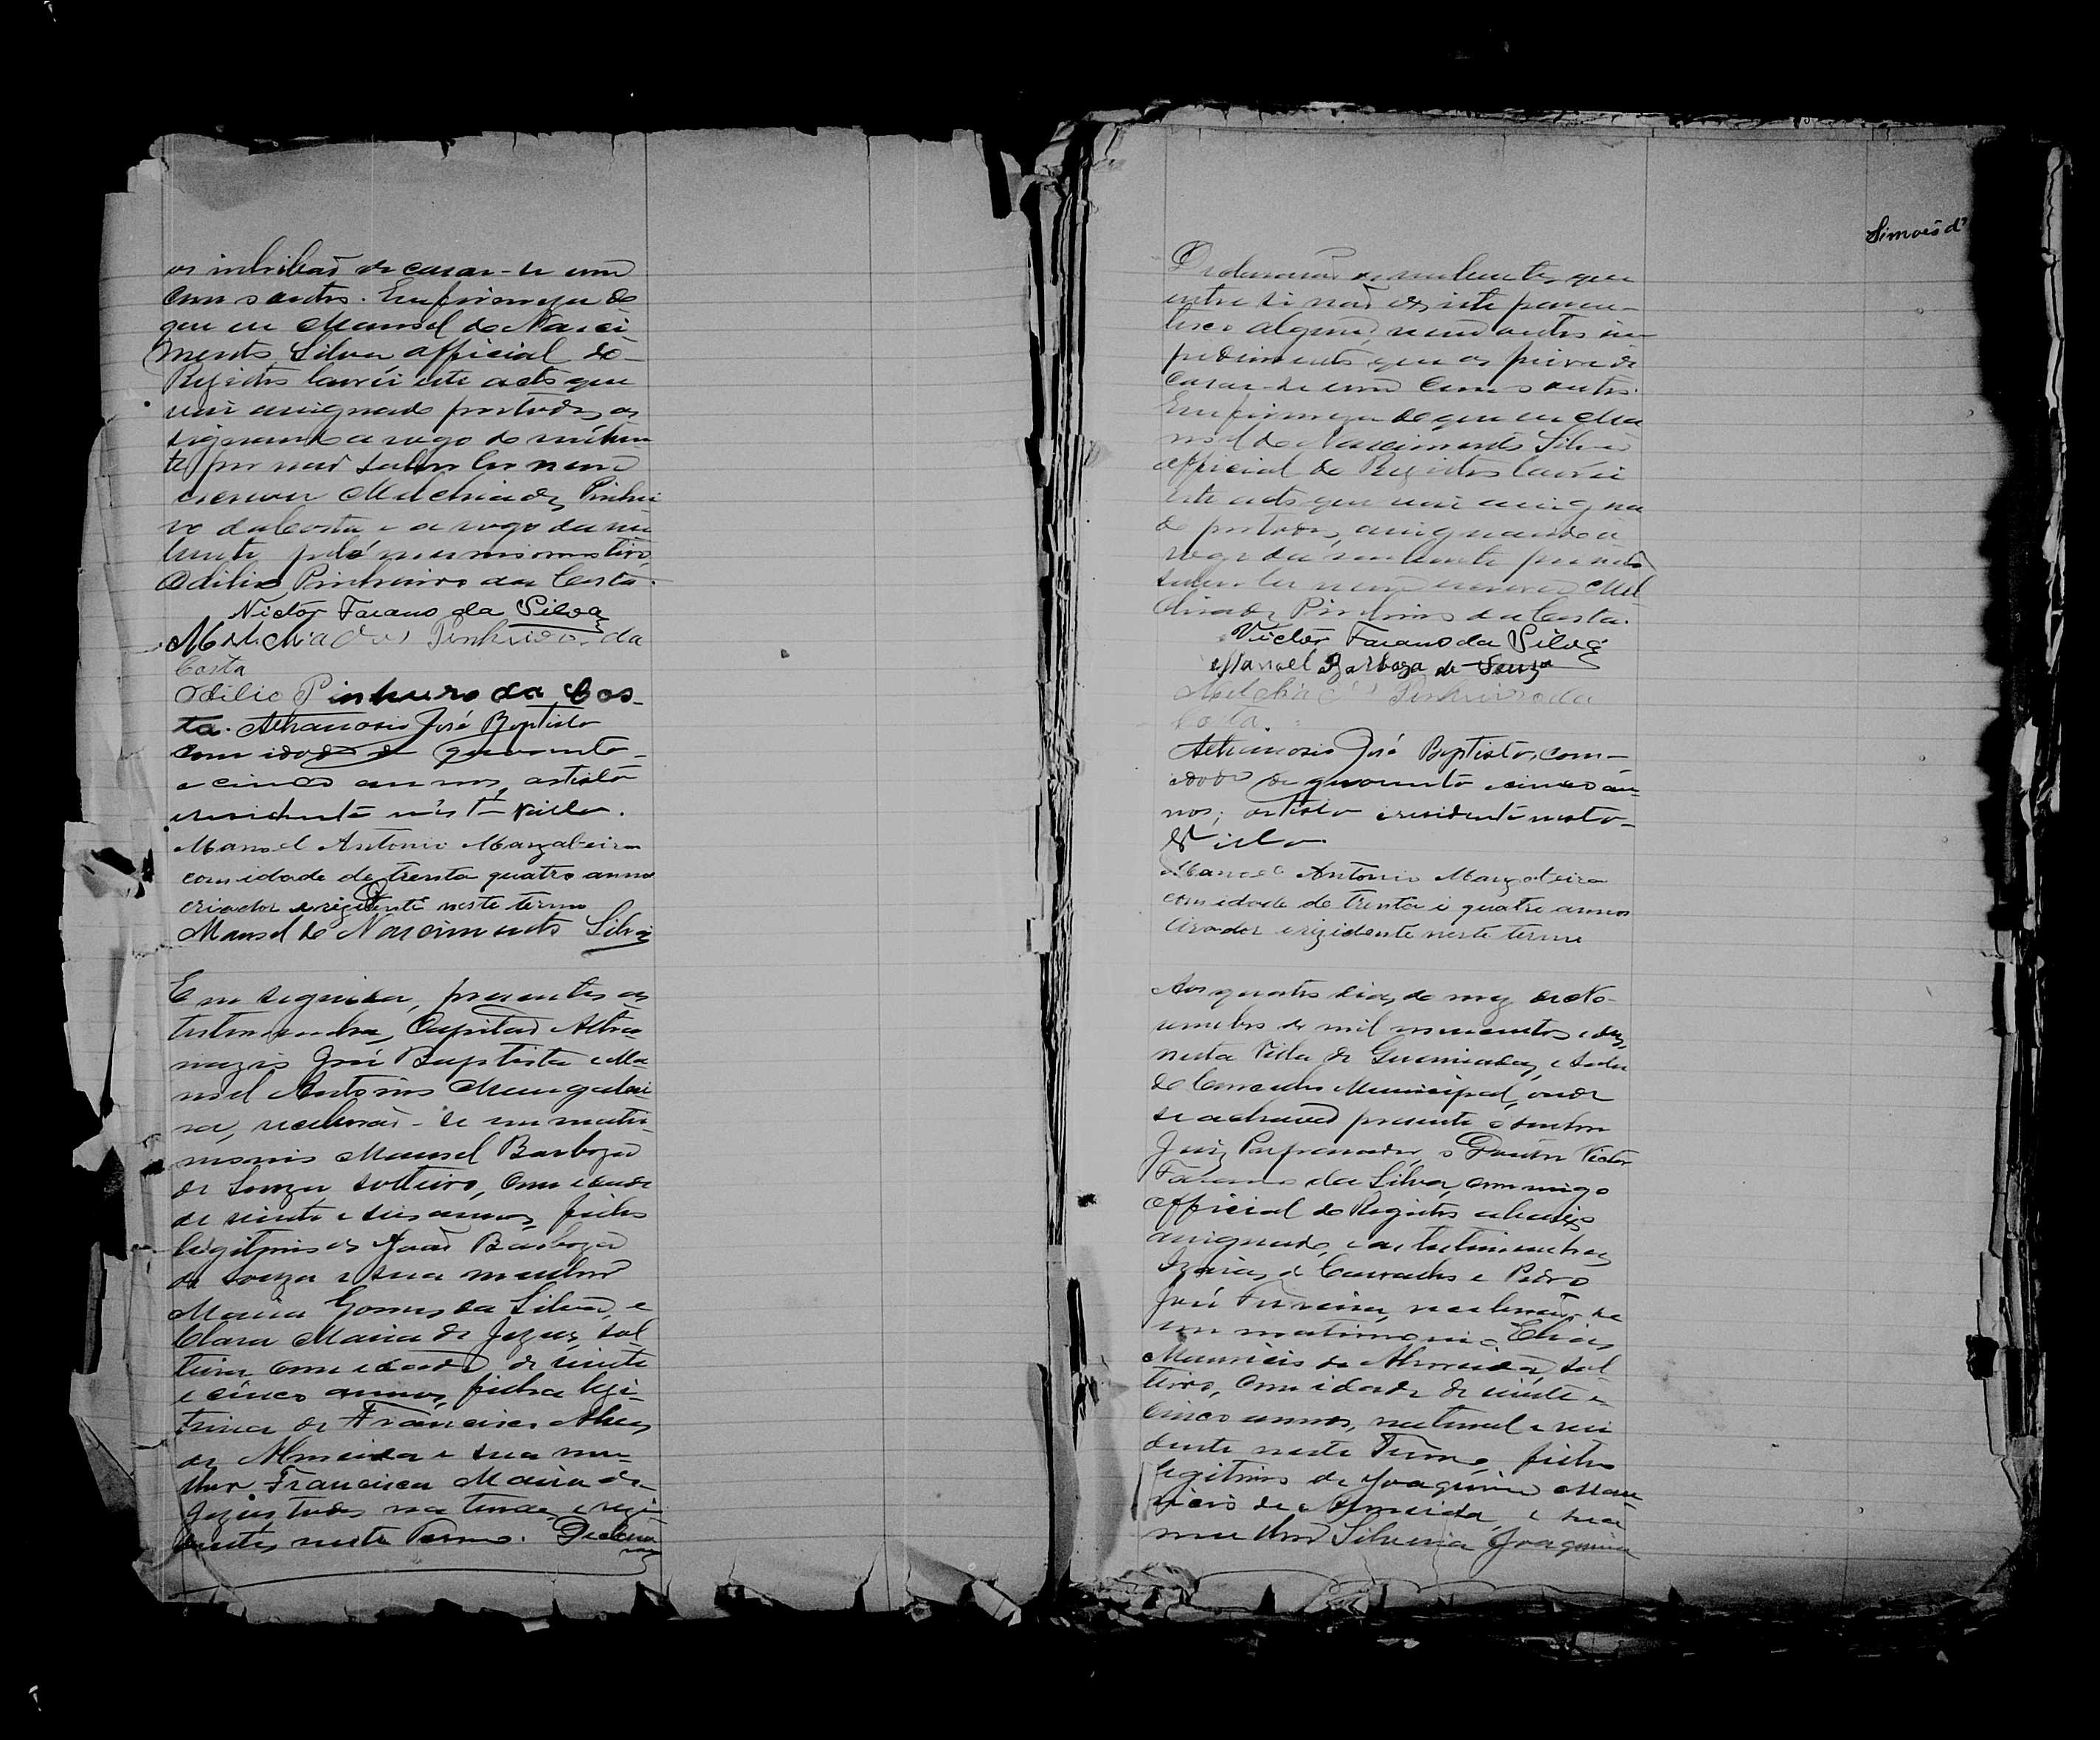 os inhibão de casar-se um
com o outro. Em firmeza do
que eu Manoel do Nasci
mento Silva official do
Registro lavrei este acto que
vai assignado por todos, as
signando a rogo do nuben
te por não saber ler nem
escrever Melchiades Pinhei
ro da Costa e a rogo da nu
bente pelo mesmo motivo,
Odilio Pinheiro da Costa.
Victor Faiano da Silva
Melchiades Pinheiro da
Costa
Odilio Pinheiro da Cos-
ta. Athanasio José Baptista
com idade de quarenta
e cinco annos, artista
e residente nésta Villa.
Manoel Antonio Mangabeira
com idade de trenta quatro annos
criador e rezidente neste termo
Manoel do Nascimento Silva
Em seguida, presentes as
testemunhas, Capitão Atha
nazio José Baptista e Ma
noel Antonio Mangabei
ra, receberão-se em matri
monio Manoel Barboza
de Souza, solteiro, com idade
de vinte e seis annos, filho
legitimo de João Barboza
de Souza e sua mulher
Maria Gomes da Silva, e
Clara Maria de Jezus, sol
teira com idade de vinte
e cinco annos, filha legi-
tima de Francisco Alves
de Almeida e sua mu-
lher Francisca Maria de
Jezus, todos naturaes e rezi
dentes neste Termo. Declara
Declararão os nubentes, que
entre si não existe paren-
tesco algum, nem outro im
pedimento que os prive de
casar-se um com o outro.
Em firmeza do que eu Ma
noel do Nascimento Silva
official do Registro lavrei
este acto que vai assigna
do por todos, assignando a
rogo da nubente por não
saber ler nem escrever Mel
chiades Pinheiro da Costa.
Victor Faiano da Silva
Manoel Barboza de Souza
Melchiades Pinheiro da
Costa.
Athanasio José Baptista, com
idade de quarenta e cinco an-
nos, artista e residente nesta
Villa
Manoel Antonio Mangabeira
com idade de trenta e quatro annos
Criador e rizidente neste termo
Aos quatro dias do mez de No-
vembro de mil novecentos e dez,
nesta Villa de Queimadas, e Sala
do Conselho Municipal, onde
se achava presente o senhor
Juiz Preparador, o Doutor Victor
Faiano da Silva, commigo
Official do Registro abaixo
assignado, e as testemunhas
Izaias de Carvalho e Pedro
José Ferreira, receberão-se
em matrimonio Elias
Mauricio de Almeida, sol
teiro, com idade de vinte e
cinco annos, natural e resi
dente neste Termo, filho
legitimo de Joaquim Mau
ricio de Almeida, e sua
mulher Silveria Joaquina
Simões d